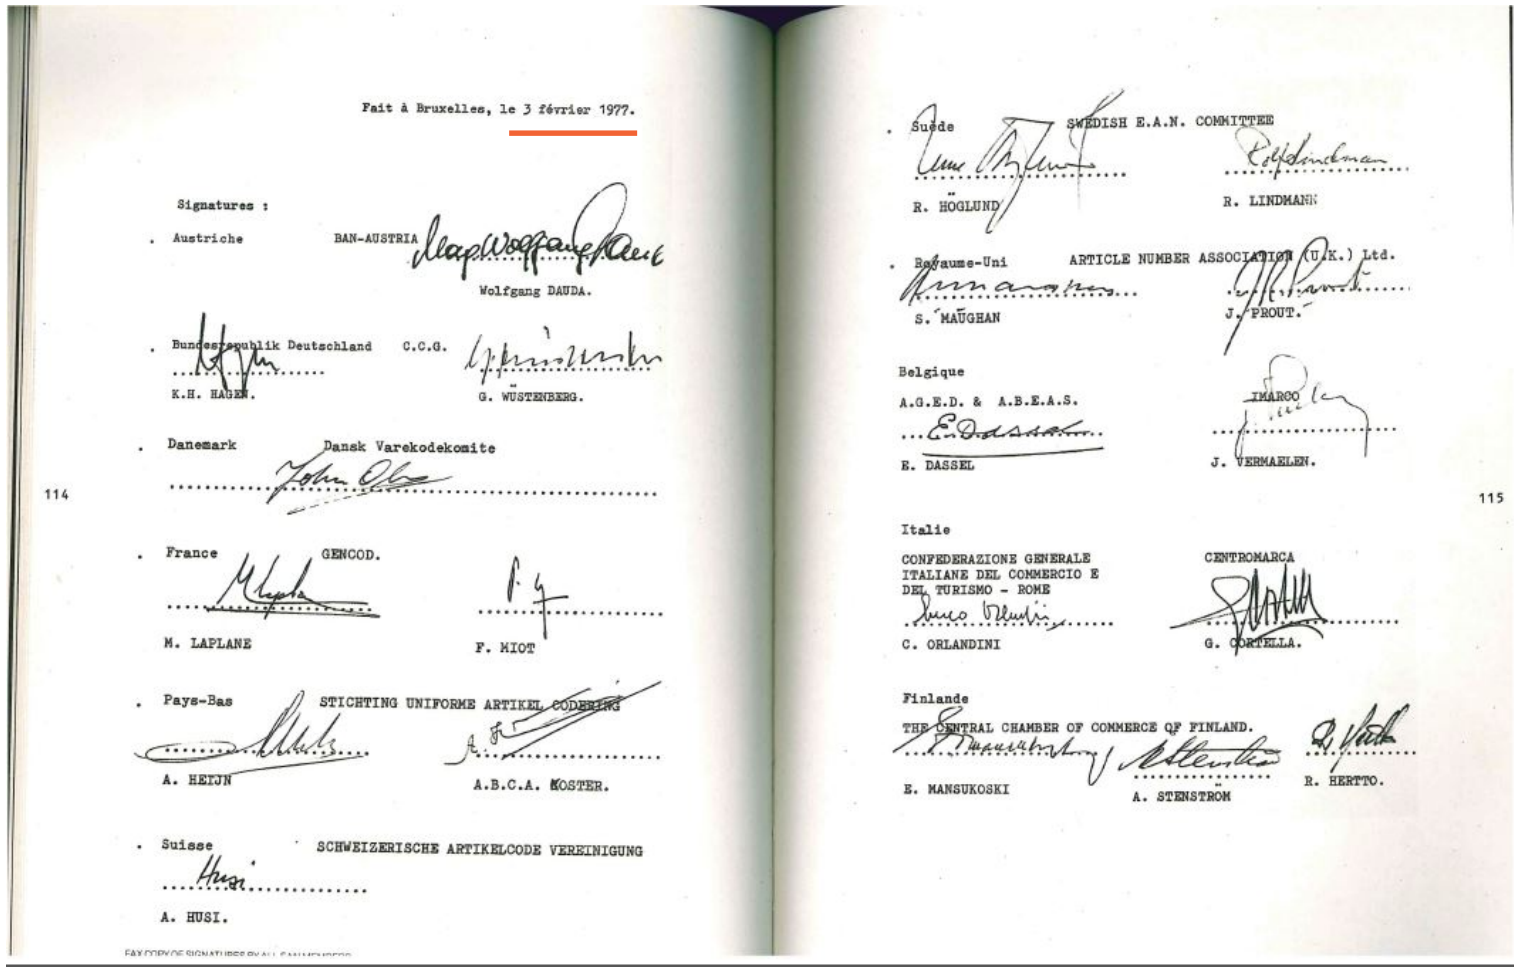 Fait à Bruxelles, le 3 février 1977.
Signatures :
. Autriche BAN-AUSTRIA
Wolfgang DAUDA.
. Bundesrepublik Deutschland C.C.G.
K.H. HAGEN. G. WÜSTENBERG.
. Danemark Dansk Varekodekomite
John
114
. France GENCOD.
M. LAPLANE F. MIOT
. Pays-Bas STICHTING UNIFORME ARTIKEL CODERING
A. HEIJN A.B.C.A. KOSTER.
. Suisse SCHWEIZERISCHE ARTIKELCODE VEREINIGUNG
Husi
A. HUSI.
FAX COPY OF SIGNATURES BY ALL EAN MEMBERS
. Suède SWEDISH E.A.N. COMMITTEE
Rolf Lindman
R. HÖGLUND R. LINDMANN
. Royaume-Uni ARTICLE NUMBER ASSOCIATION (U.K.) Ltd.
S. MAUGHAN J. PROUT.
Belgique
A.G.E.D. & A.B.E.A.S. IMARCO
E. Dassel
E. DASSEL J. VERMAELEN.
115
Italie
CONFEDERAZIONE GENERALE CENTROMARCA
ITALIANE DEL COMMERCIO E
DEL TURISMO - ROME
C. ORLANDINI G. CORTELLA.
Finlande
THE CENTRAL CHAMBER OF COMMERCE OF FINLAND.
E. MANSUKOSKI A. STENSTRÖM R. HERTTO.